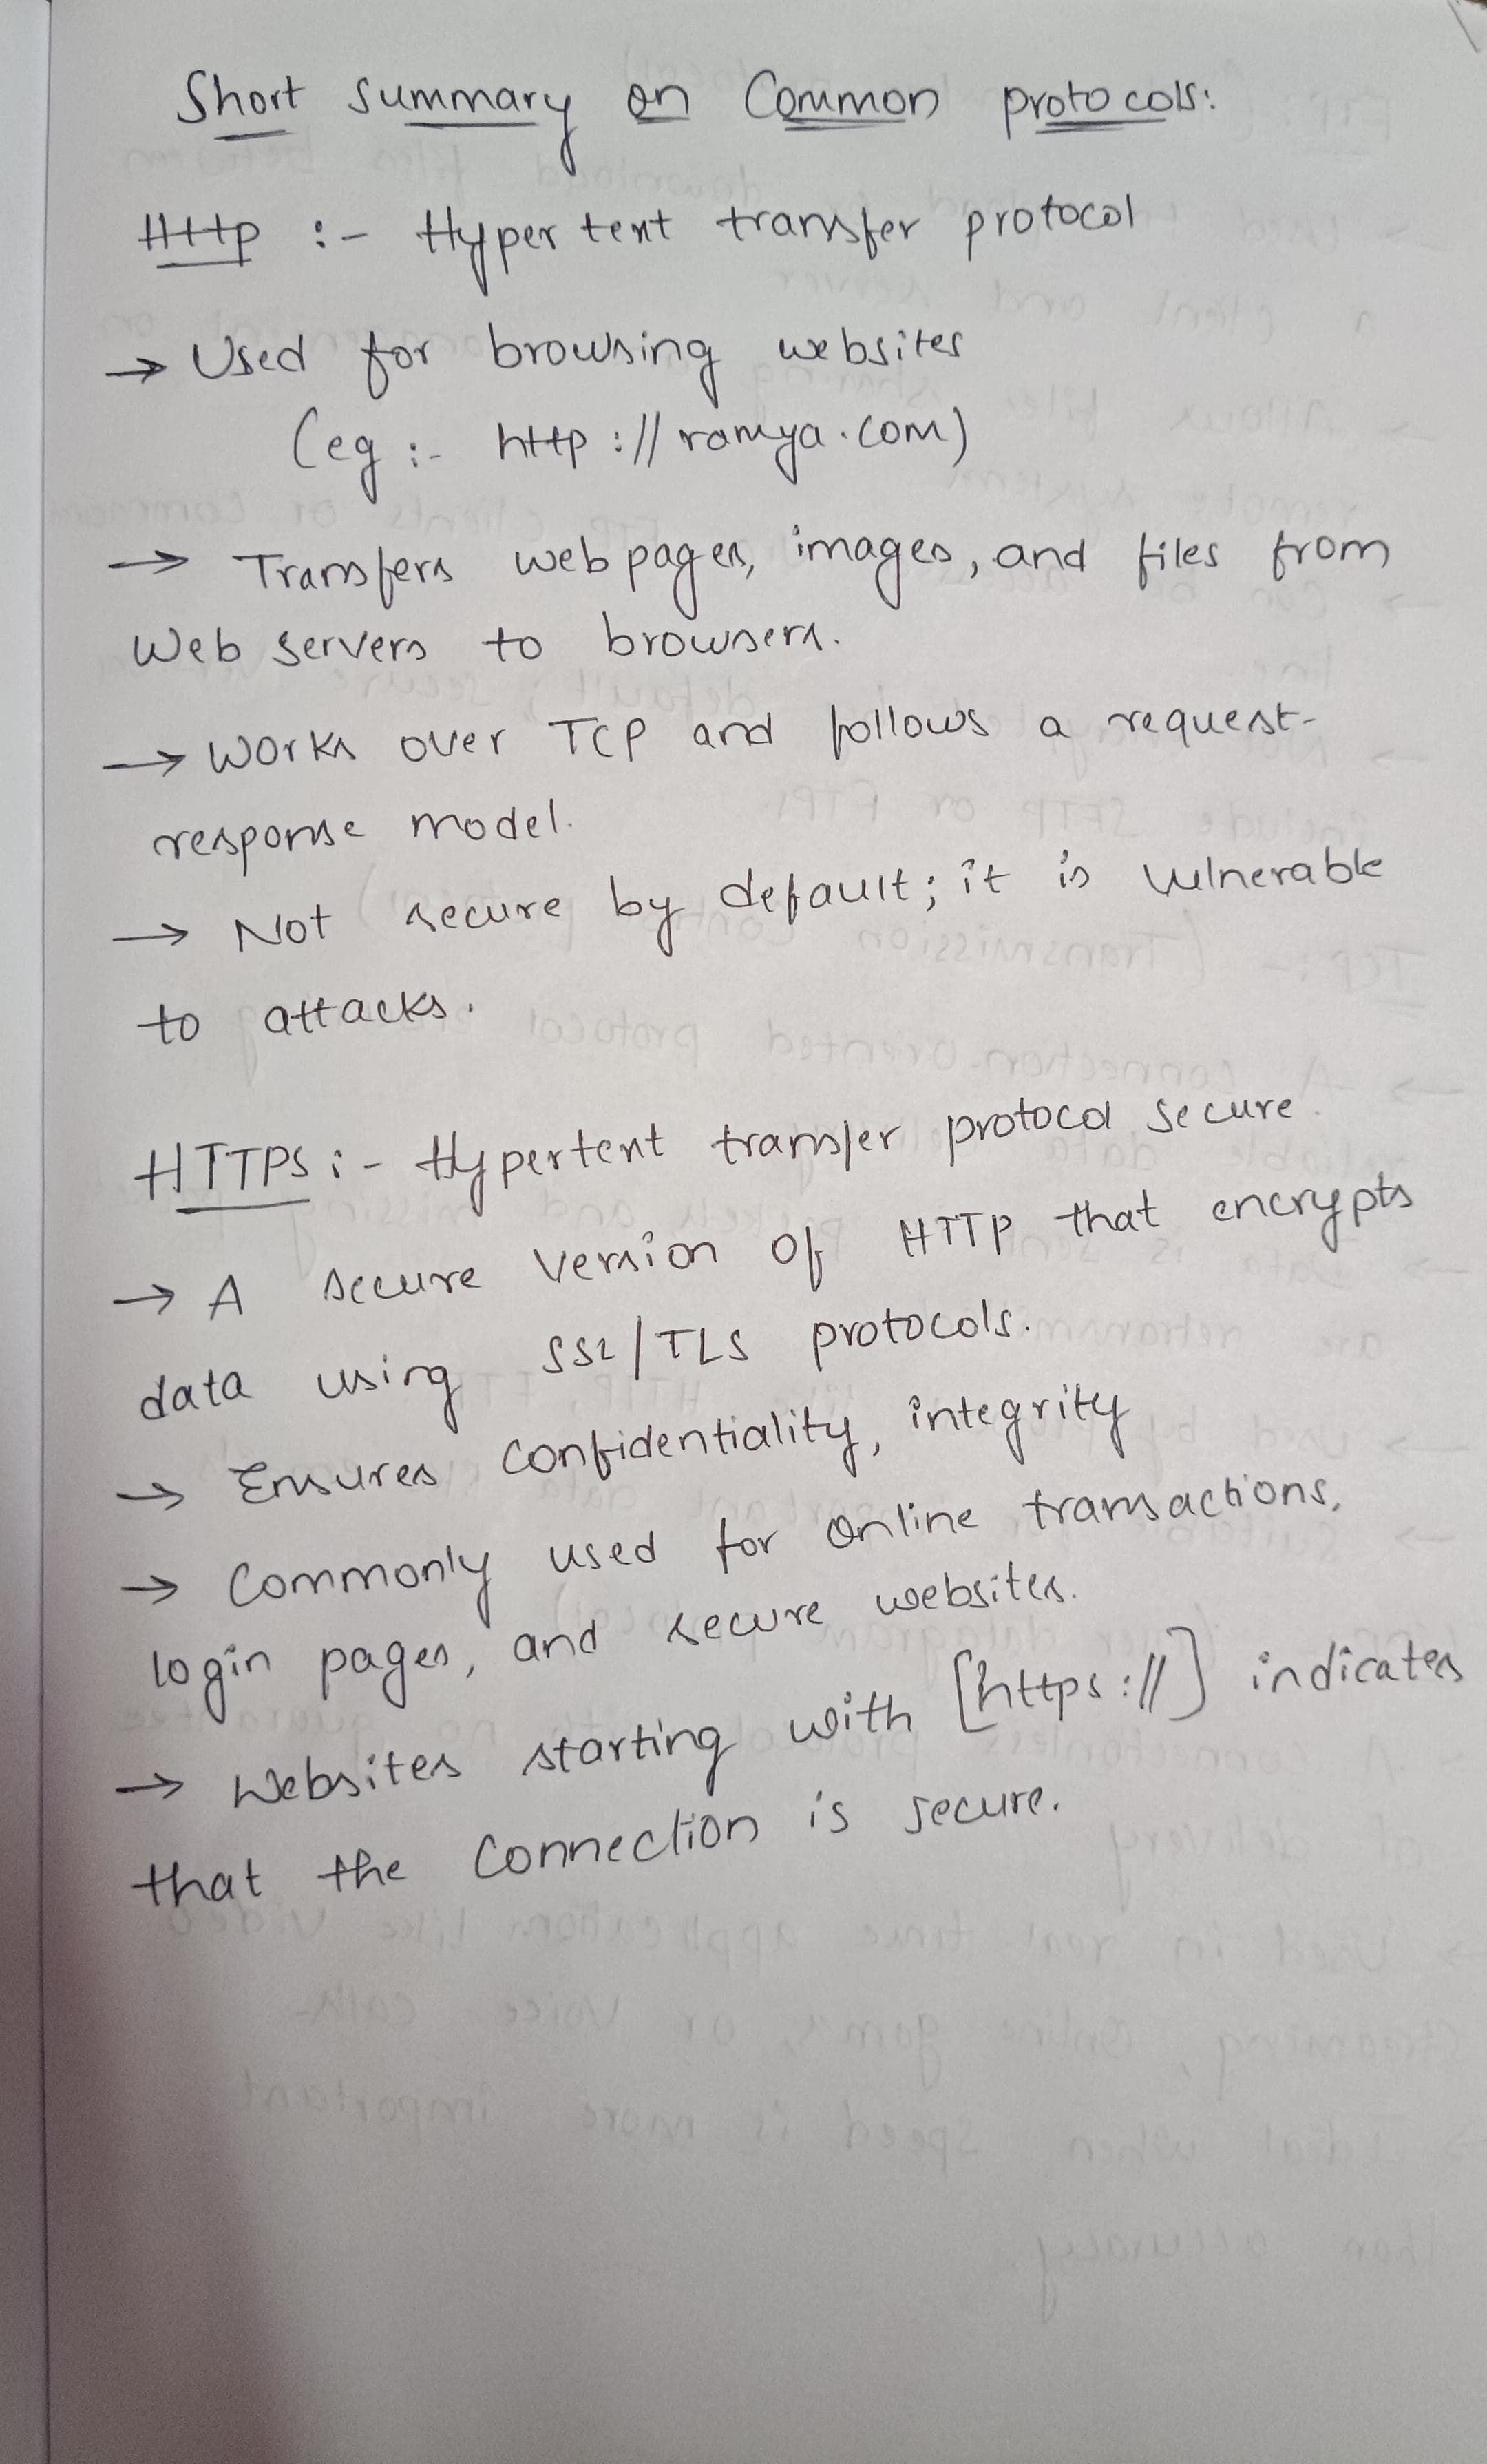 Short Summary on Common protocols:
Http :- Hyper text transfer protocol
→ Used for browsing websites
(eg :- http://ramya.com)
→ Transfers web pages, images, and files from
Web servers to browsers.
→ Works over TCP and follows a request-
response model.
→ Not secure by default; it is vulnerable
to attacks.
HTTPS :- Hypertext transfer protocol secure
→ A secure version of HTTP that encrypts
data using SSL/TLS protocols.
→ Ensures confidentiality, integrity
→ Commonly used for online transactions,
login pages, and secure websites.
→ Websites starting with [https://] indicates
that the connection is secure.